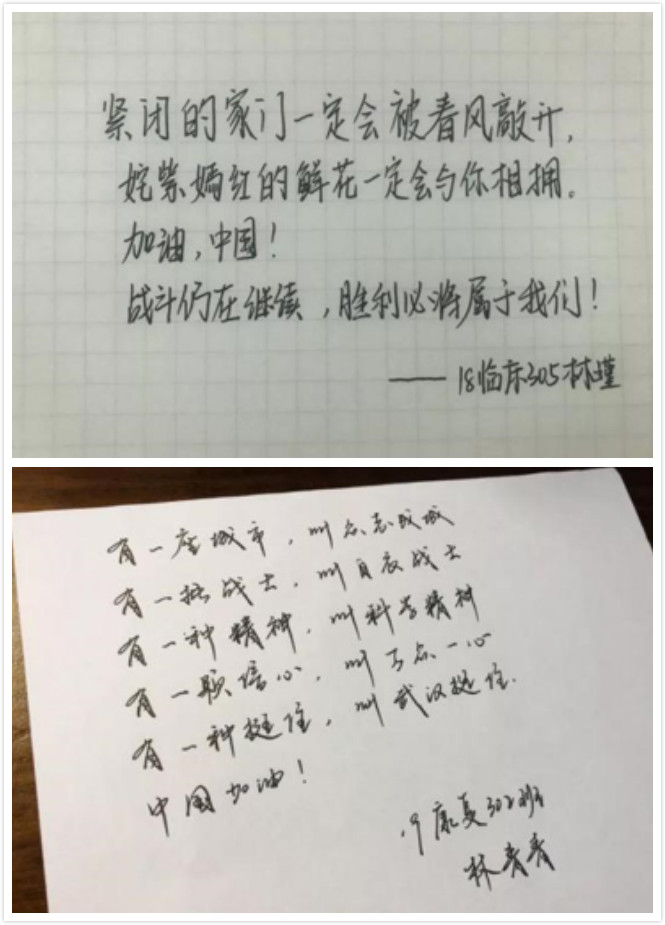 紧闭的家门一定会被春风敲开,
姹紫嫣红的鲜花一定会与你相拥。
加油,中国!
战斗仍在继续,胜利必将属于我们!
——18临床305林瑾
有一座城市,叫众志成城
有一批战士,叫白衣战士
有一种精神,叫科学精神
有一颗信心,叫万众一心
有一种挺住,叫武汉挺住.
中国加油!
19康复302班
林青青